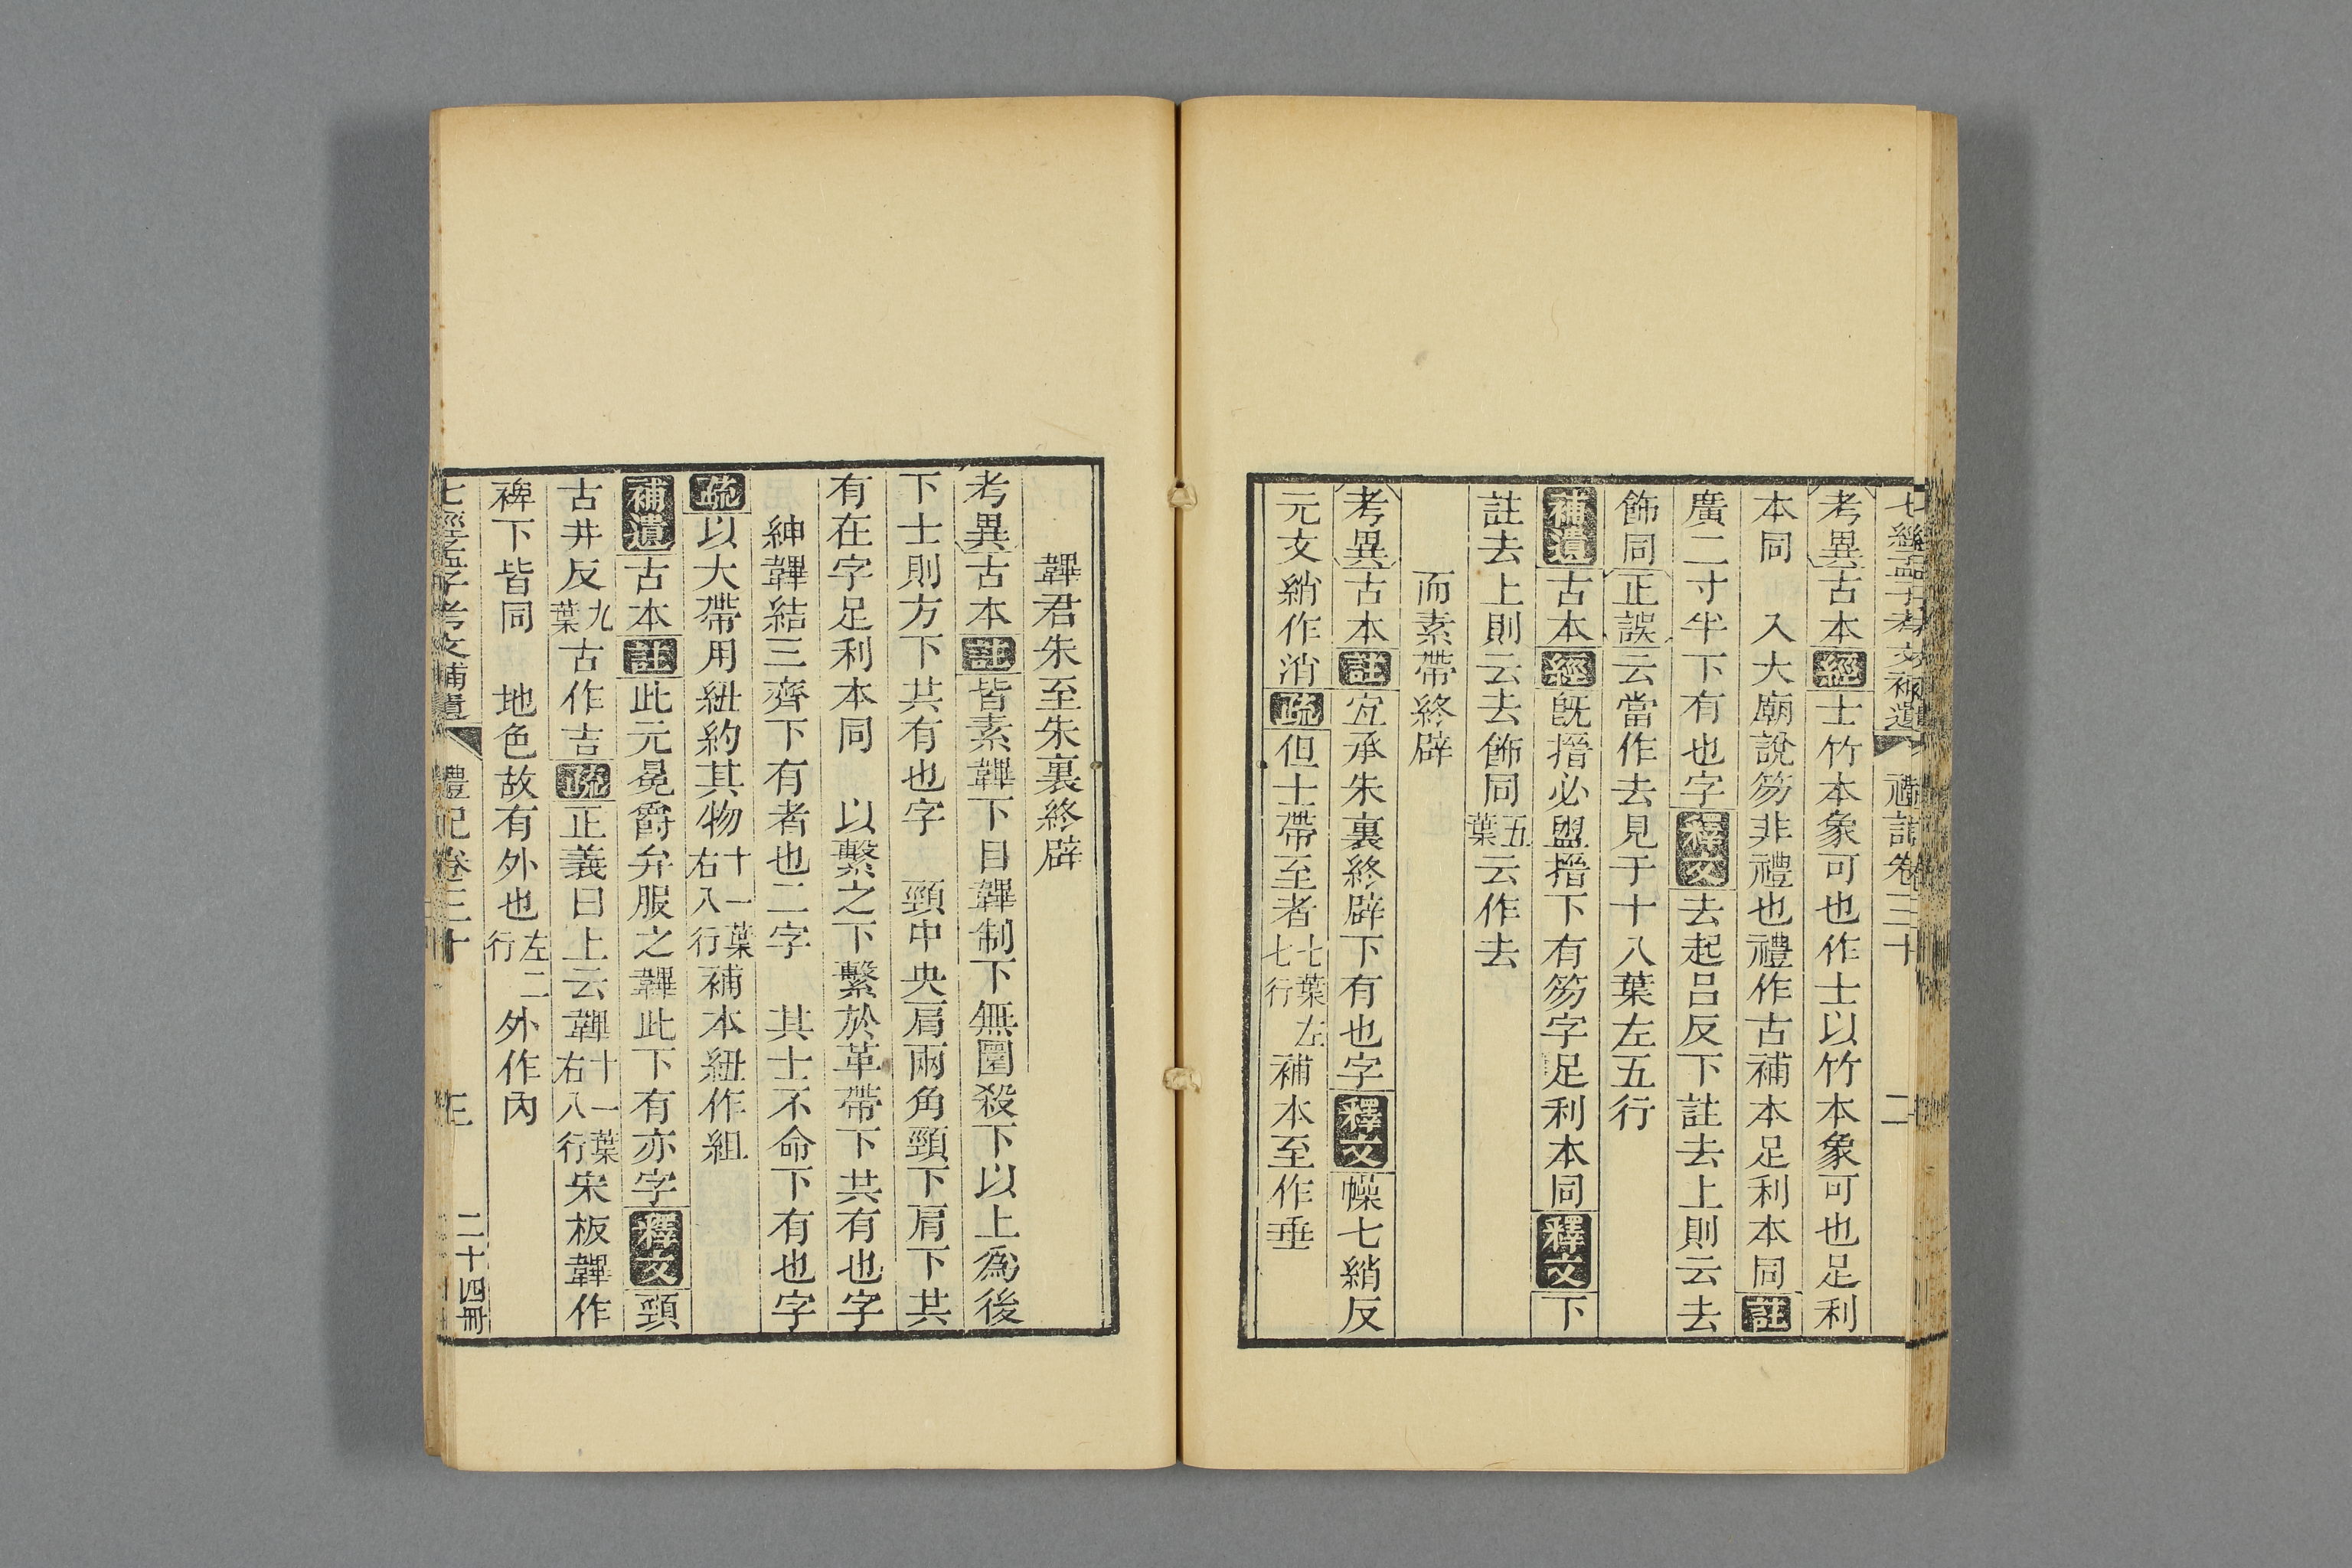 七經孟子考文補遺 禮記卷三十 二
考異古本經士竹本象可也作士以竹本象可也足利
本同 入大廟說笏非禮也禮作古補本足利本同註
廣二寸半下有也字釋文去起呂反下註去上則云去
飾同正誤云當作去見于十八葉左五行
補遺古本經旣搢必盥搢下有笏字足利本同釋文下
註去上則云去飾同五葉云作去
而素帶終辟
考異古本註宐承朱裏終辟下有也字釋文幧七綃反
元文綃作消疏但士帶至者七葉左七行補本至作垂
韠君朱至朱裏終辟
考異古本註皆素韠下目韠制下無圜殺下以上爲後
下士則方下共有也字 頸中央肩兩角頸下肩下共
有在字足利本同 以繫之下繫於革帶下共有也字
紳韠結三齊下有者也二字 其士不命下有也字
疏以大帶用紐約其物十一葉右八行補本紐作組
補遺古本註此元冕爵弁服之韠此下有亦字釋文頸
古井反九葉古作吉疏正義曰上云韠十一葉右八行宋板韠作
裨下皆同 地色故有外也左二行外作內
七經孟子考文補遺 禮記卷三十 三 二十四冊